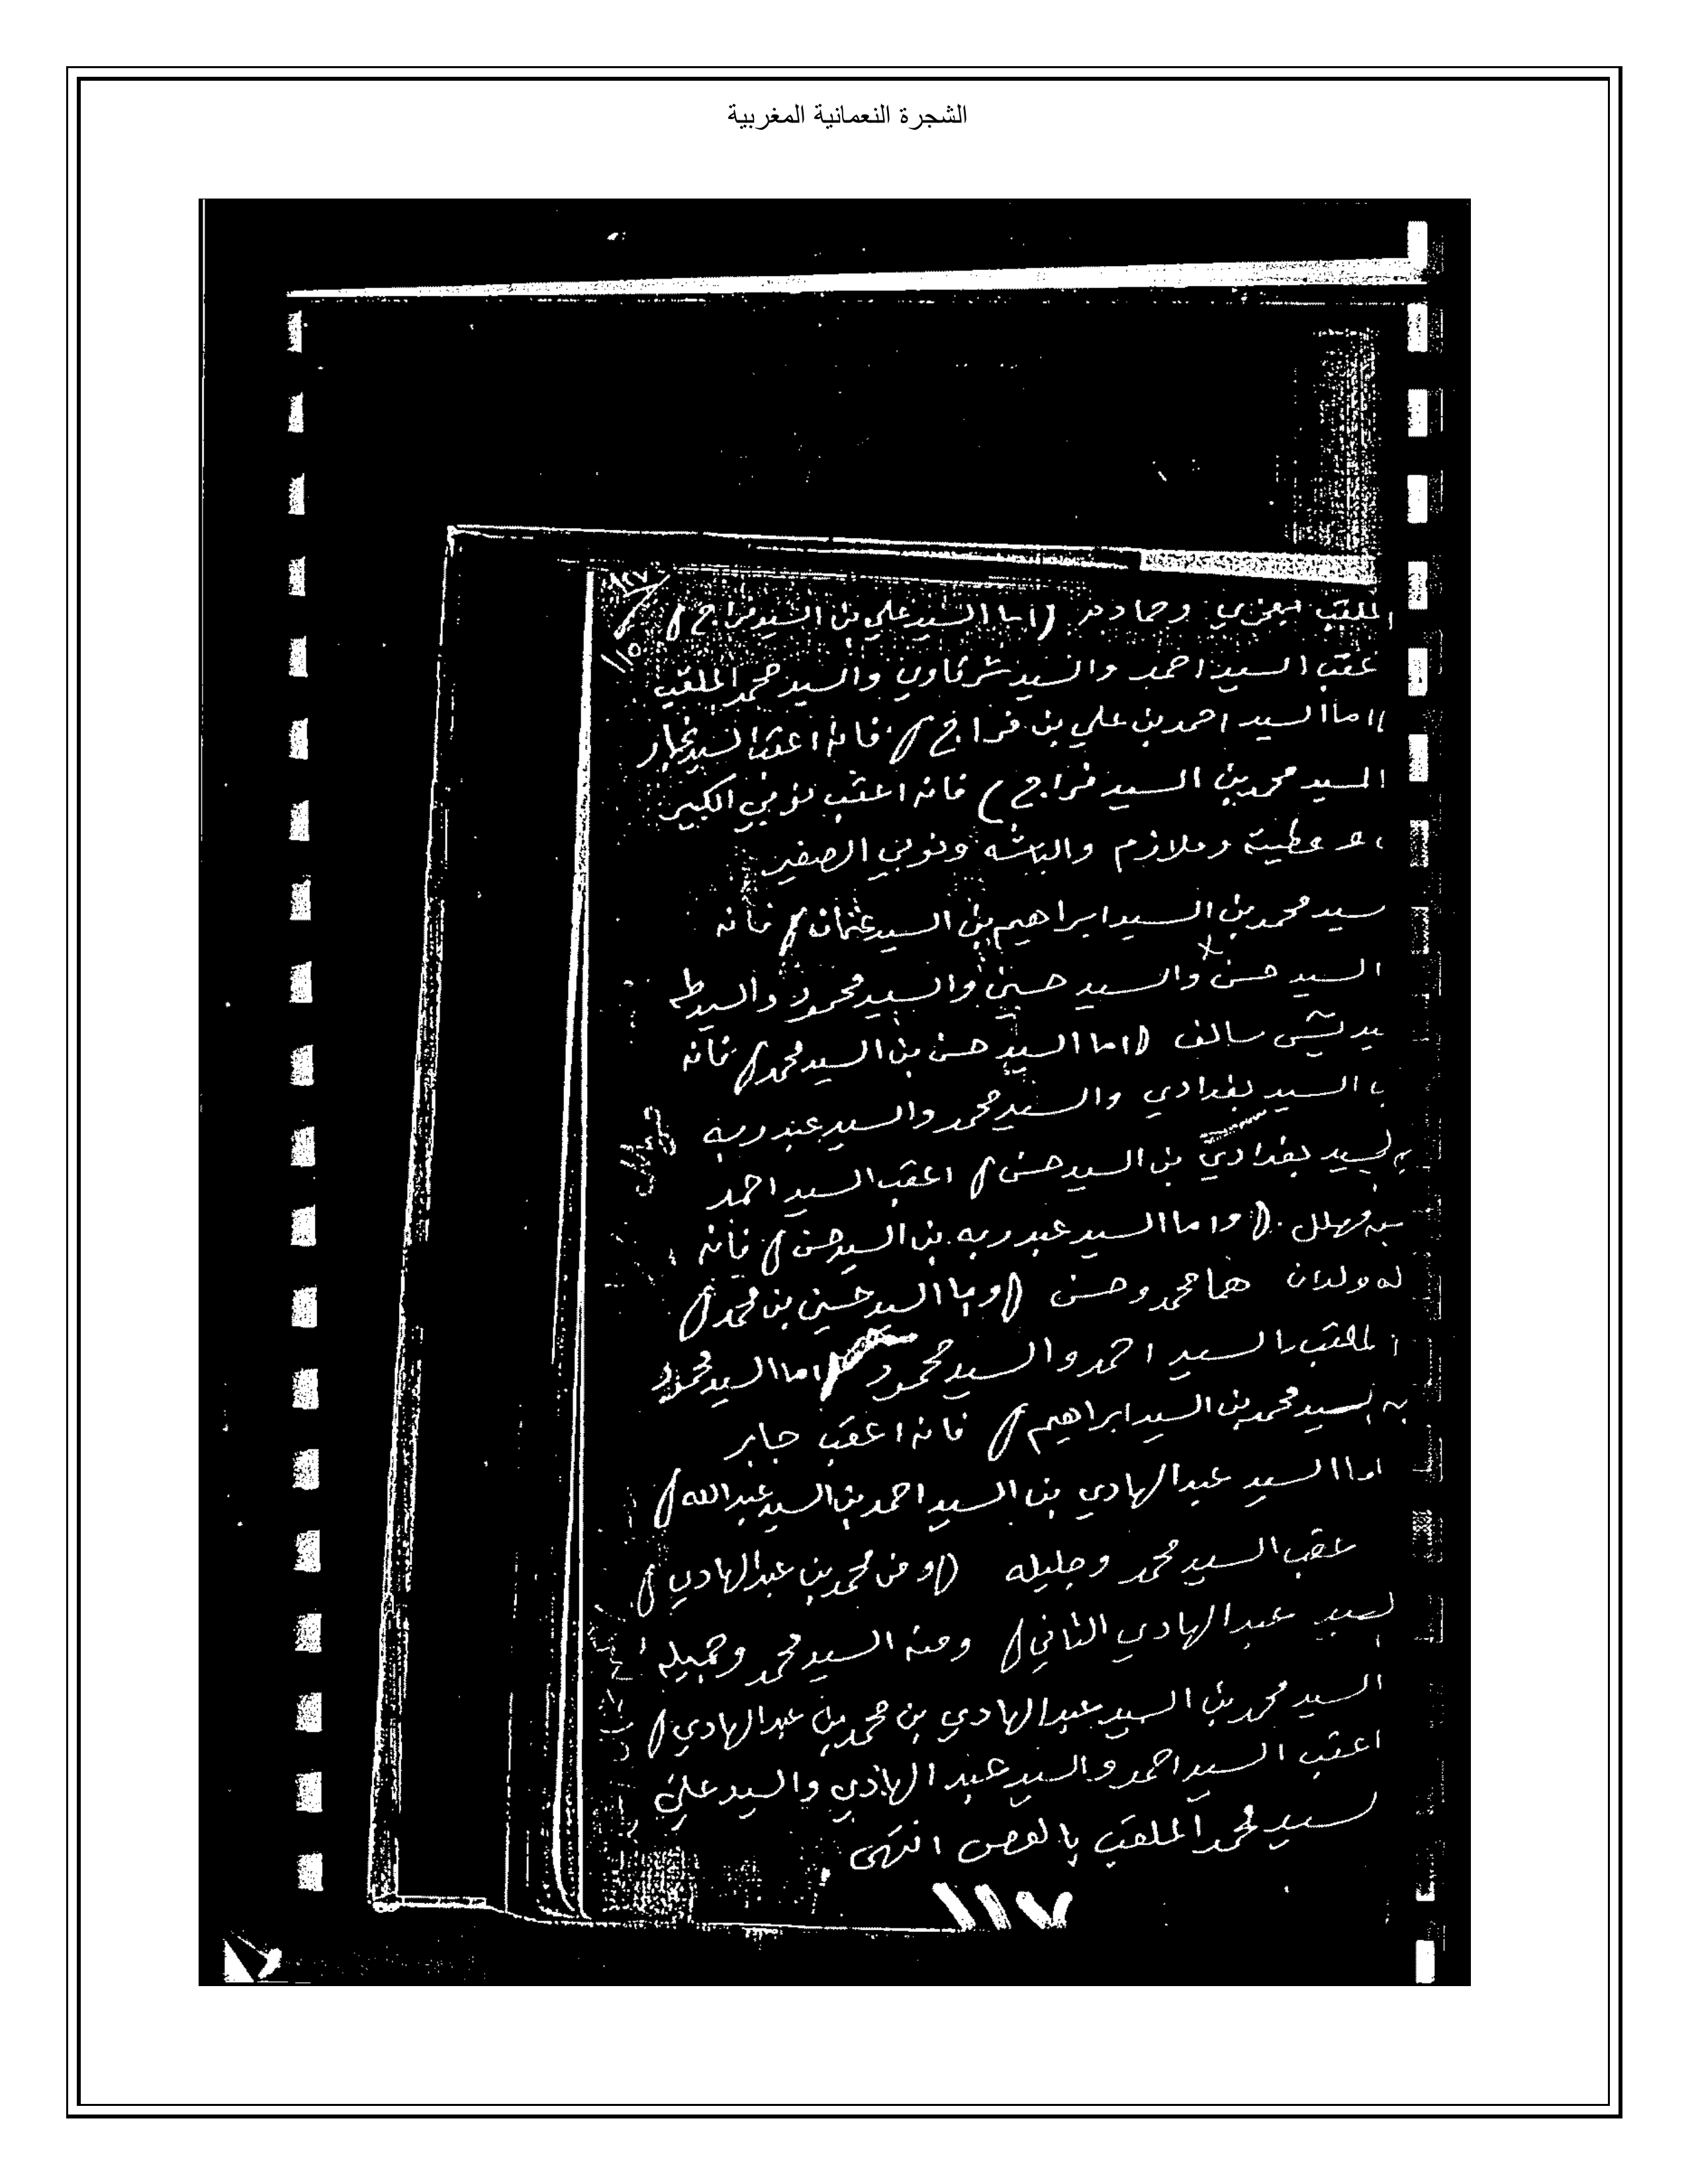 الشجرة النعمانية المغربية
١١٥
الملقب وحماد (اما السيد علي بن السيد فراج)
عقب السيد احمد والسيد شرقاوي والسيد محمد الملقب
اما السيد احمد بن علي بن فراج) فانه اعقب السيد
السيد محمد بن السيد فراج) فانه اعقب نوبي الكبير
عطية وملازم والباشه ونوبي الصغير
سيد محمد بن السيد ابراهيم بن السيد عثمان) فانه
السيد حسن والسيد حسين والسيد محمود والسيد طه
يد (اما السيد حسن بن السيد محمد) فانه
ب السيد بغدادي والسيد محمد والسيد عبد ربه
السيد بغدادي بن السيد حسن) اعقب السيد احمد
(واما السيد عبد ربه بن السيد حسن) فانه
له ولدان هما محمد وحسن (واما السيد حسين بن محمد)
السيد احمد والسيد محمود (اما السيد محمود
السيد محمد بن السيد ابراهيم) فانه اعقب جابر
السيد عبد الهادي بن السيد احمد بن السيد عبد الله)
عقب السيد محمد وجليله (ومن محمد بن عبد الهادي)
لسيد عبد الهادي الثاني) ومنه السيد محمد وجميله
السيد محمد بن السيد عبد الهادي بن محمد بن عبد الهادي)
اعقب السيد احمد والسيد عبد الهادي والسيد علي
لسيد محمد الملقب انتهى
١١٧